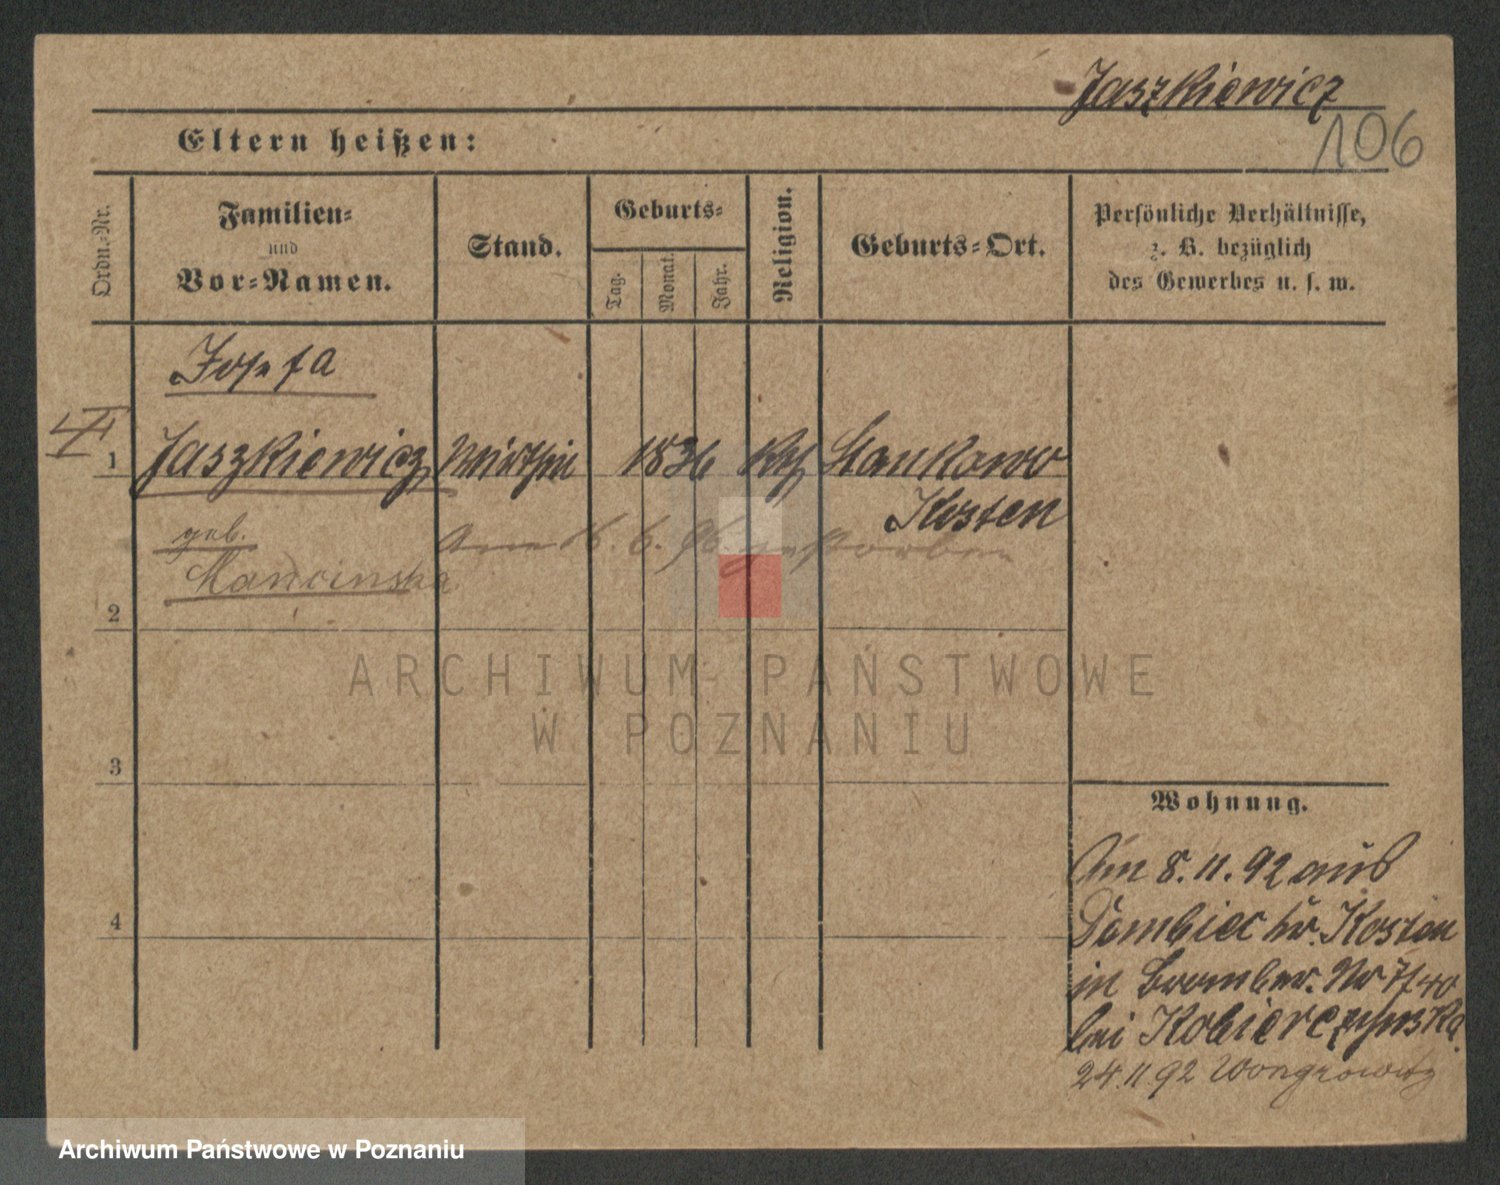 Jaszkiewicz
106
Eltern heißen:
Ordn.-Nr.
Familien-
und
Vor-Namen.
Stand.
Geburts-
Tag.
Monat.
Jahr.
Religion.
Geburts-Ort.
Persönliche Verhältnisse,
z. B. bezüglich
des Gewerbes u. s. w.
Josefa
1 Jaszkiewicz Wirthin 1836 kth Stankowo
Kosten
geb.
Am 16.6.96 gestorben
Marcinska
2
ARCHIWUM PAŃSTWOWE
W POZNANIU
3
Wohnung.
Am 8.11.92 aus
4
Dembiec kr. Kosten
in Bromber. Nr 7/40
bei Kobierczynska
24.11 92 Wongrowitz
Archiwum Państwowe w Poznaniu